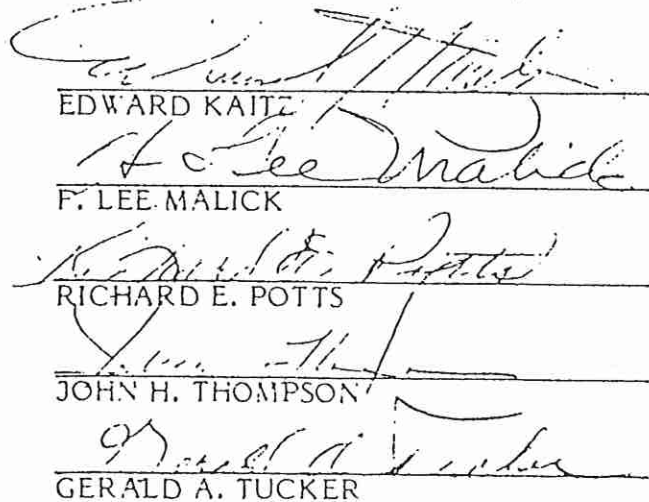 EDWARD KAITZ
F. Lee Malick
F. LEE MALICK
Richard E. Potts
RICHARD E. POTTS
JOHN H. THOMPSON
Gerald A. Tucker
GERALD A. TUCKER